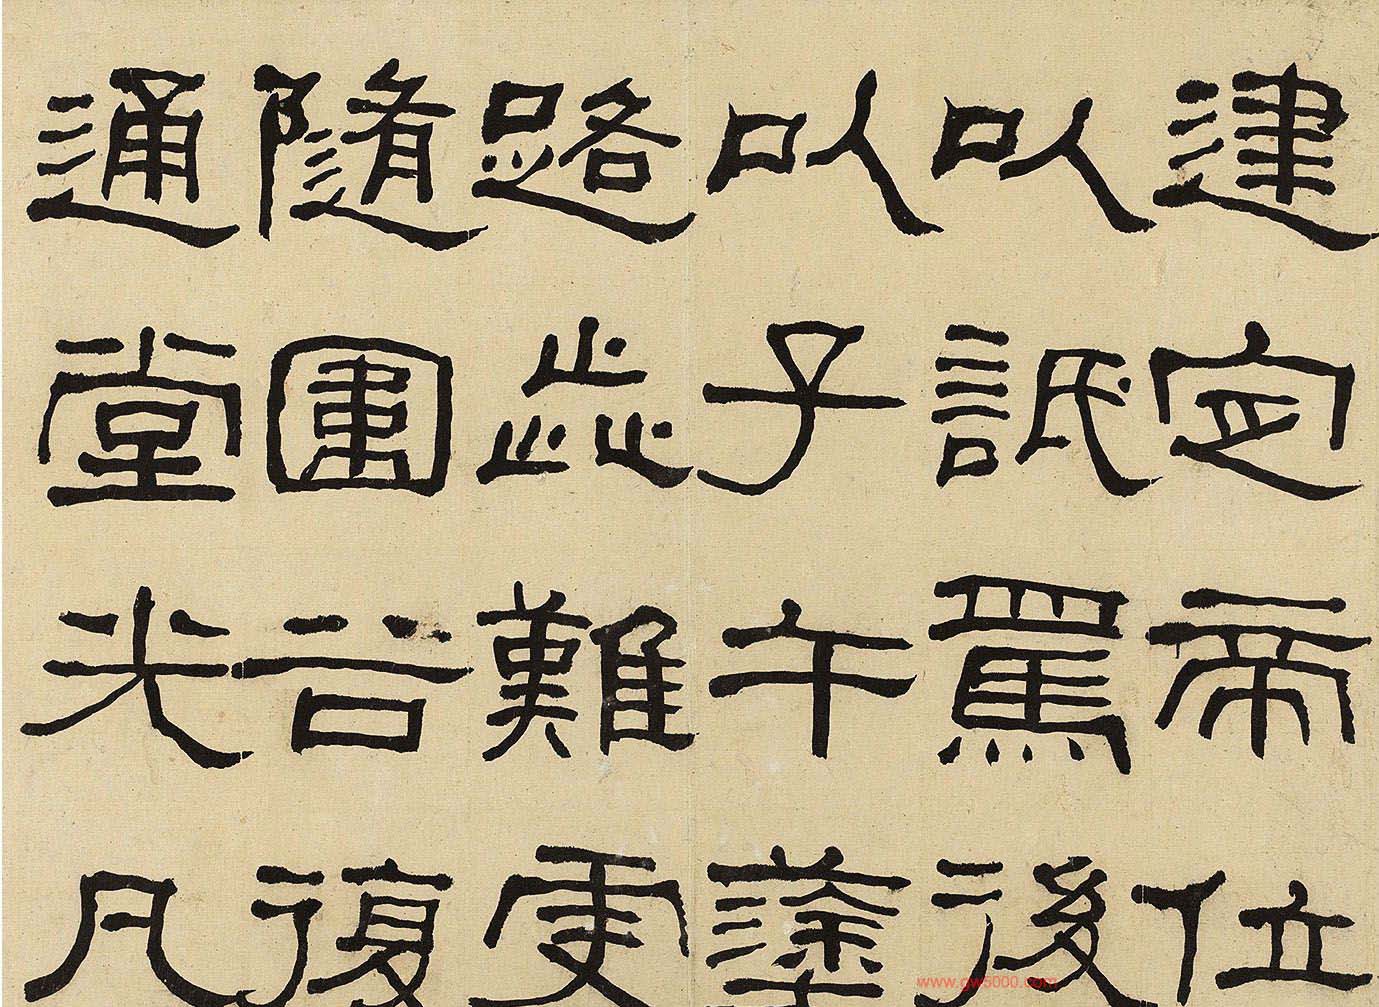 建定帝位
以詆罵後
以子午塗
路歮難更
隨圍谷復
通堂光凡
www.gw5000.com